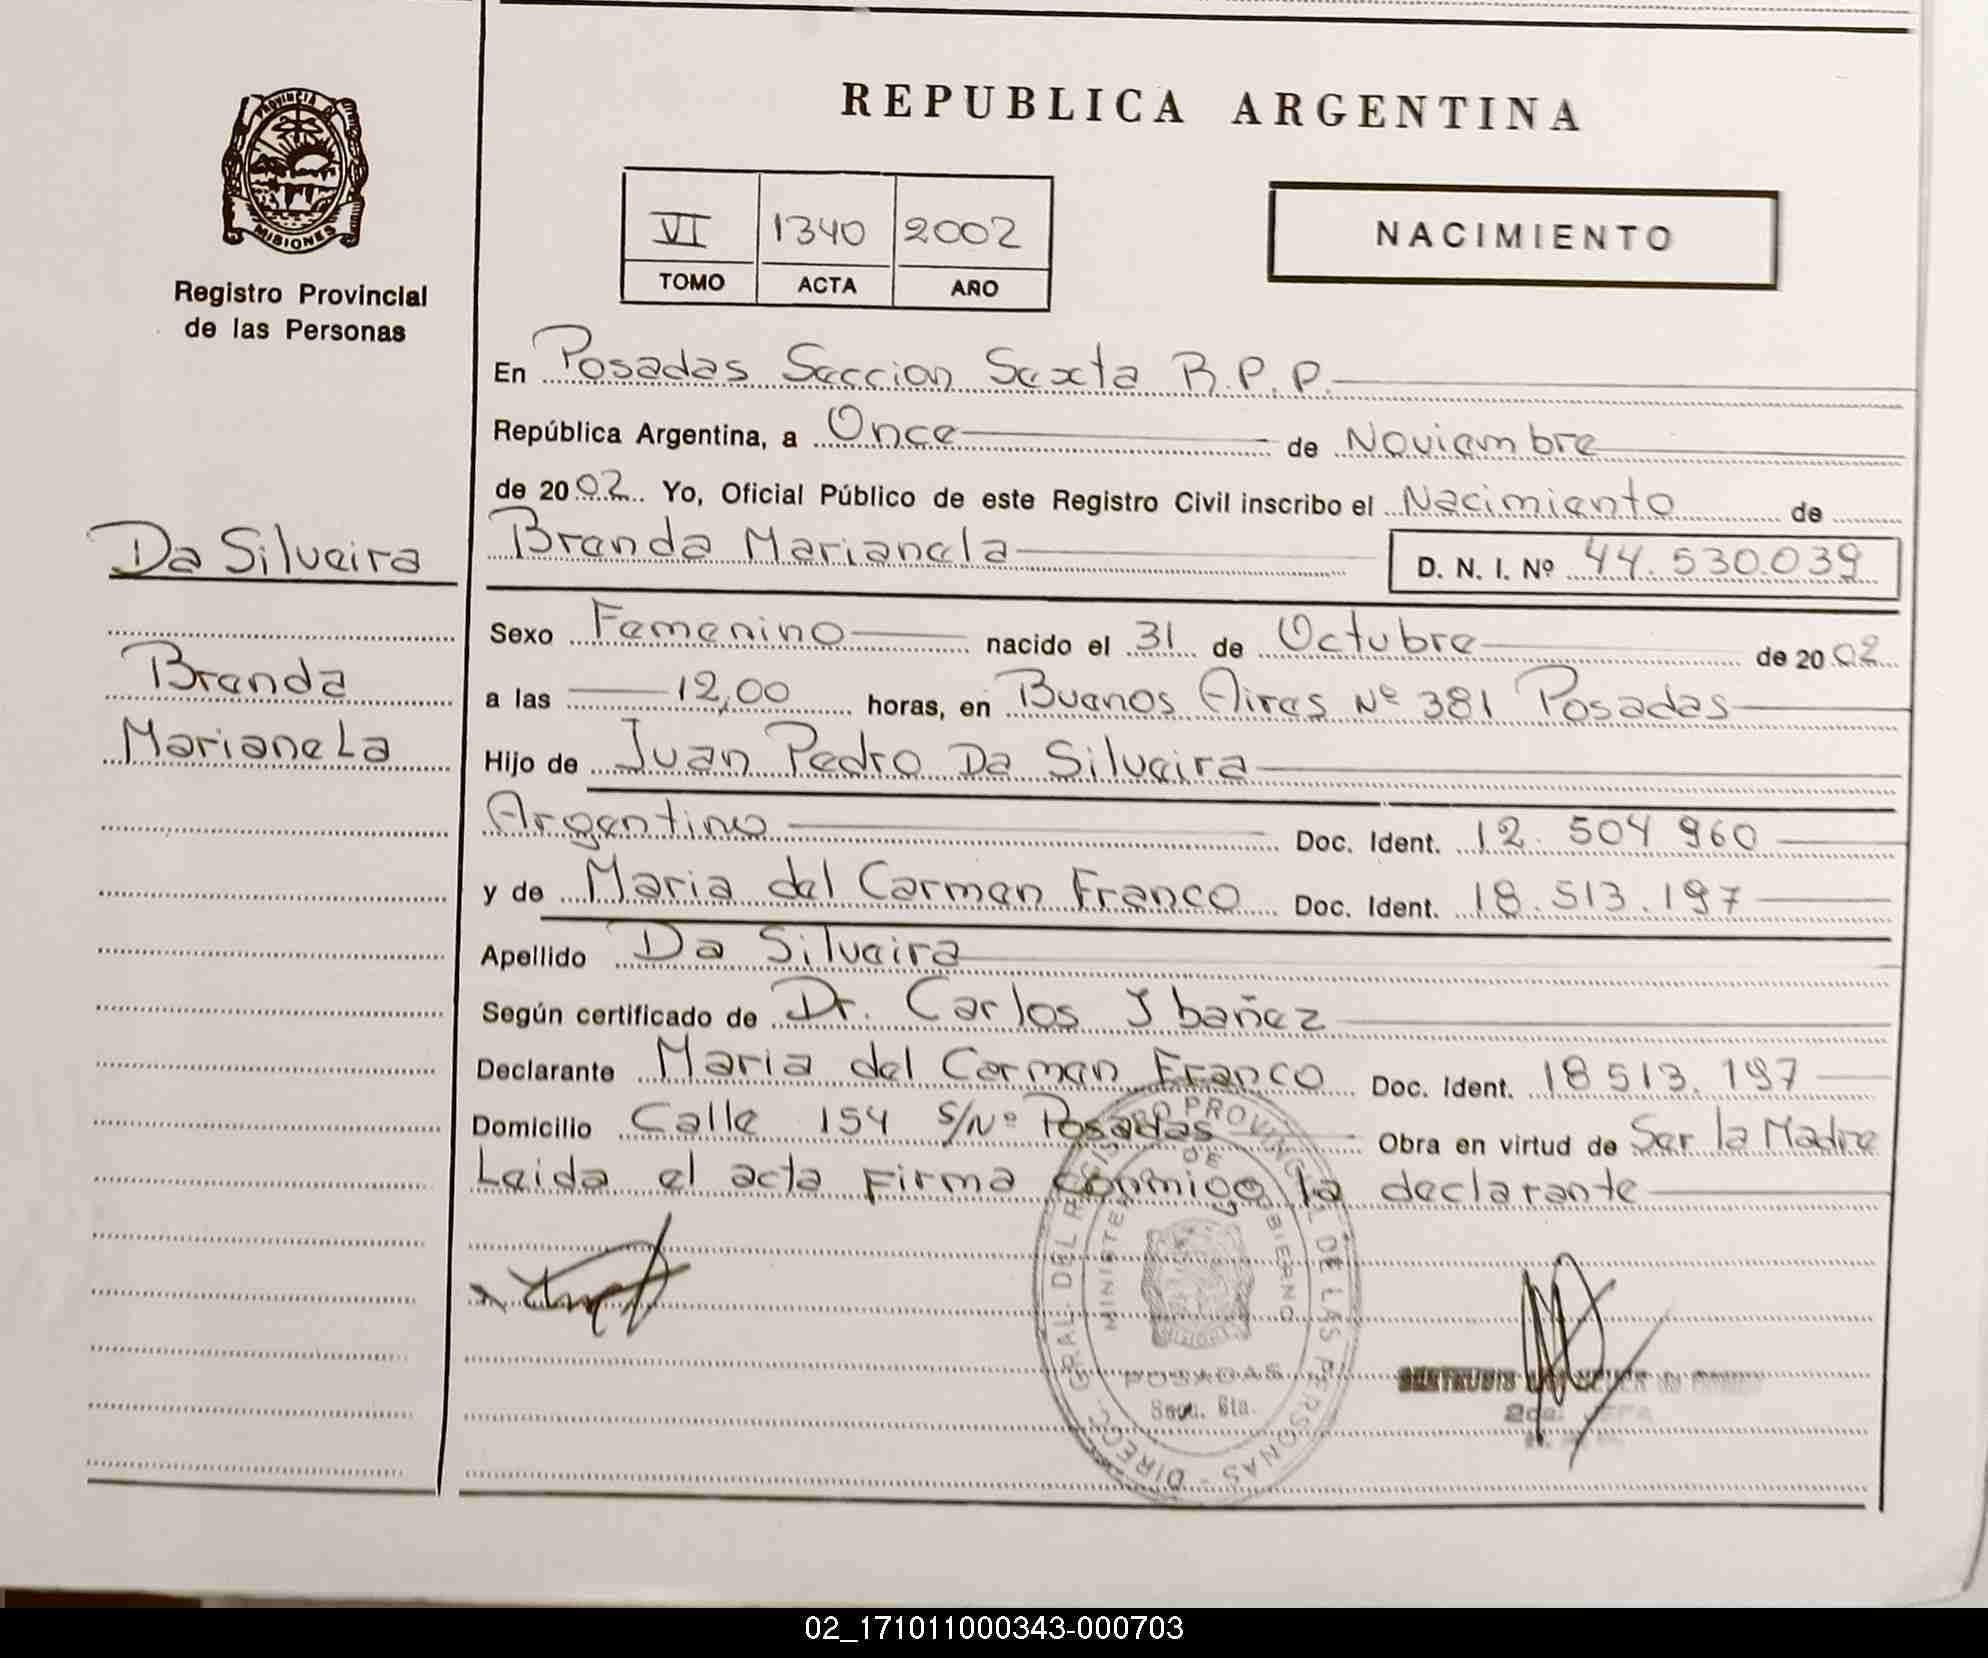 REPUBLICA ARGENTINA
PROVINCIA DE
MISIONES
Registro Provincial
de las Personas
VI 1340 2002
TOMO ACTA AÑO
NACIMIENTO
En Posadas Seccion Sexta R.P.P.
República Argentina, a Once de Noviembre
de 2002 Yo, Oficial Público de este Registro Civil inscribo el Nacimiento de
Brenda Marianela D. N. I. Nº 44.530.039
Da Silveira
Brenda
Marianela
Sexo Femenino nacido el 31 de Octubre de 2002
a las 12,00 horas, en Buenos Aires Nº 381 Posadas
Hijo de Juan Pedro Da Silveira
Argentino Doc. Ident. 12.504 960
y de Maria del Carmen Franco Doc. Ident. 18.513.197
Apellido Da Silveira
Según certificado de Dr. Carlos Ibañez
Declarante Maria del Carmen Franco Doc. Ident. 18513.197
Domicilio Calle 154 S/Nº Posadas Obra en virtud de Ser la Madre
Leida el acta Firma conmigo la declarante
DIRECC. GRAL. DEL REGISTRO PROVINCIAL DE LAS PERSONAS
MINISTERIO DE GOBIERNO
POSADAS
Secc. 6ta.
02_171011000343-000703